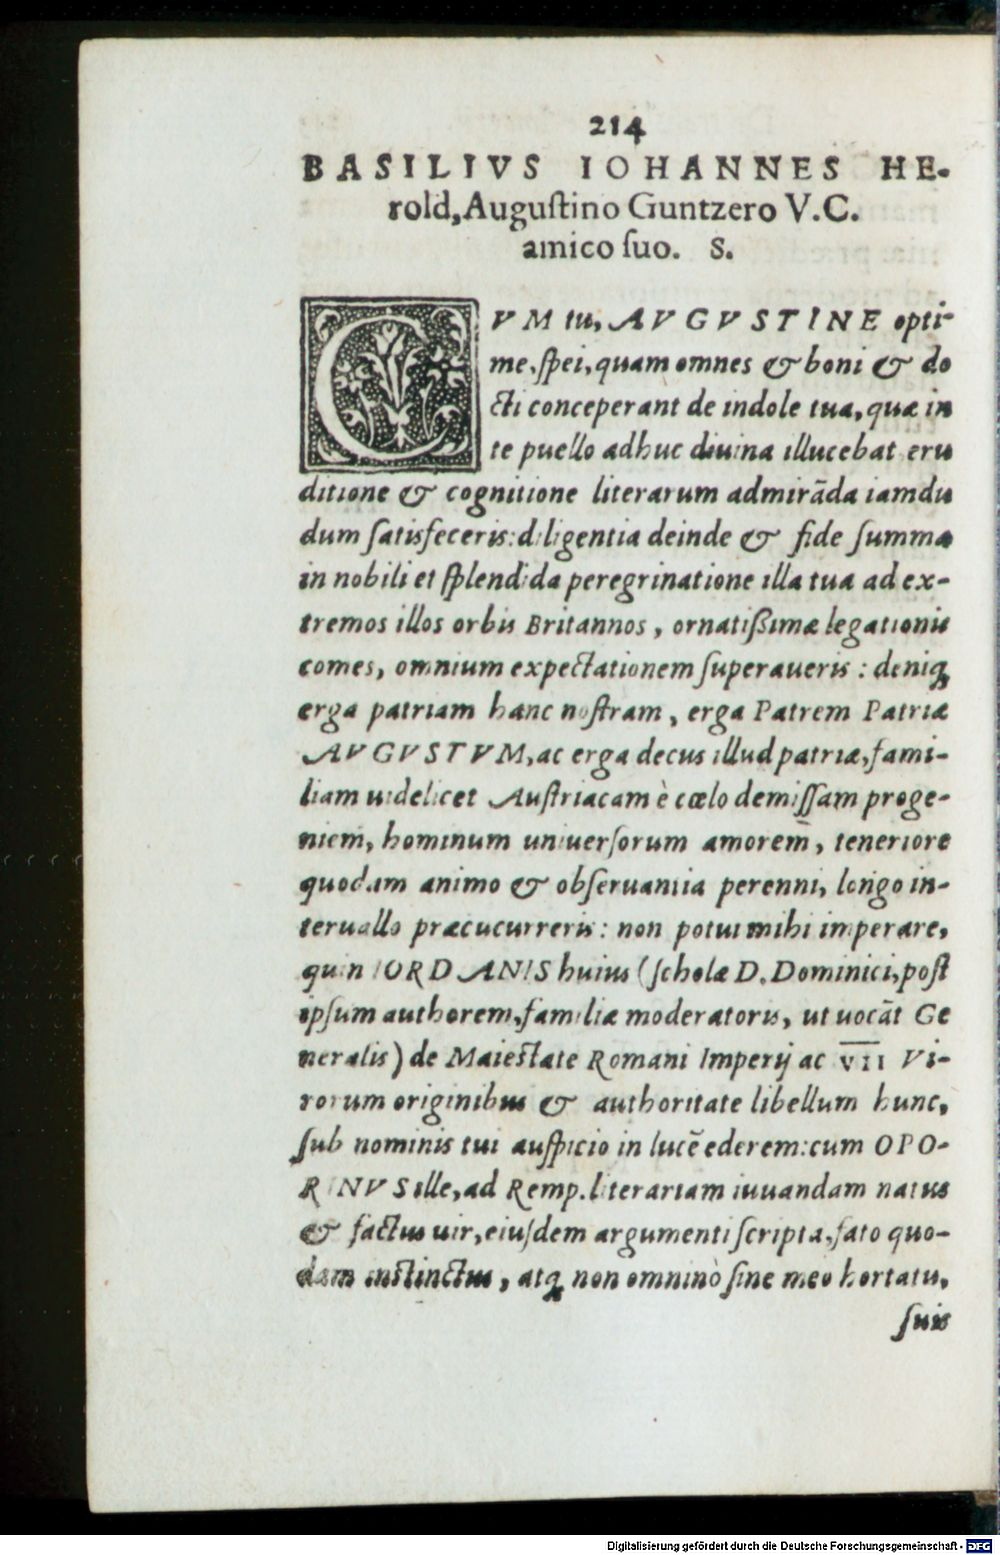 214
BASILIVS IOHANNES HE-
rold, Augustino Guntzero V.C.
amico suo. S.
CVM tu, AVGVSTINE opti-
me, spei, quam omnes & boni & do
cti conceperant de indole tua, quæ in
te puello adhuc diuina illucebat eru
ditione & cognitione literarum admirāda iamdu
dum satisfeceris: diligentia deinde & fide summa
in nobili et splendida peregrinatione illa tua ad ex-
tremos illos orbis Britannos, ornatißimæ legationis
comes, omnium expectationem superaueris: deniq;
erga patriam hanc nostram, erga Patrem Patriæ
AVGVSTVM, ac erga decus illud patriæ, fami-
liam uidelicet Austriacam è cœlo demissam proge-
niem, hominum uniuersorum amorem, teneriore
quodam animo & obseruantia perenni, longo in-
teruallo præcucurreris: non potui mihi imperare,
quin IORDANIS huius (scholæ D. Dominici, post
ipsum authorem, familiæ moderatoris, ut uocāt Ge
neralis) de Maiestate Romani Imperij ac VII Vi-
rorum originibus & authoritate libellum hunc,
sub nominis tui auspicio in lucē ederem: cum OPO-
RINVS ille, ad Remp. literariam iuuandam natus
& factus uir, eiusdem argumenti scripta, fato quo-
dam instinctus, atq; non omninò sine meo hortatu,
suis
Digitalisierung gefördert durch die Deutsche Forschungsgemeinschaft - DFG